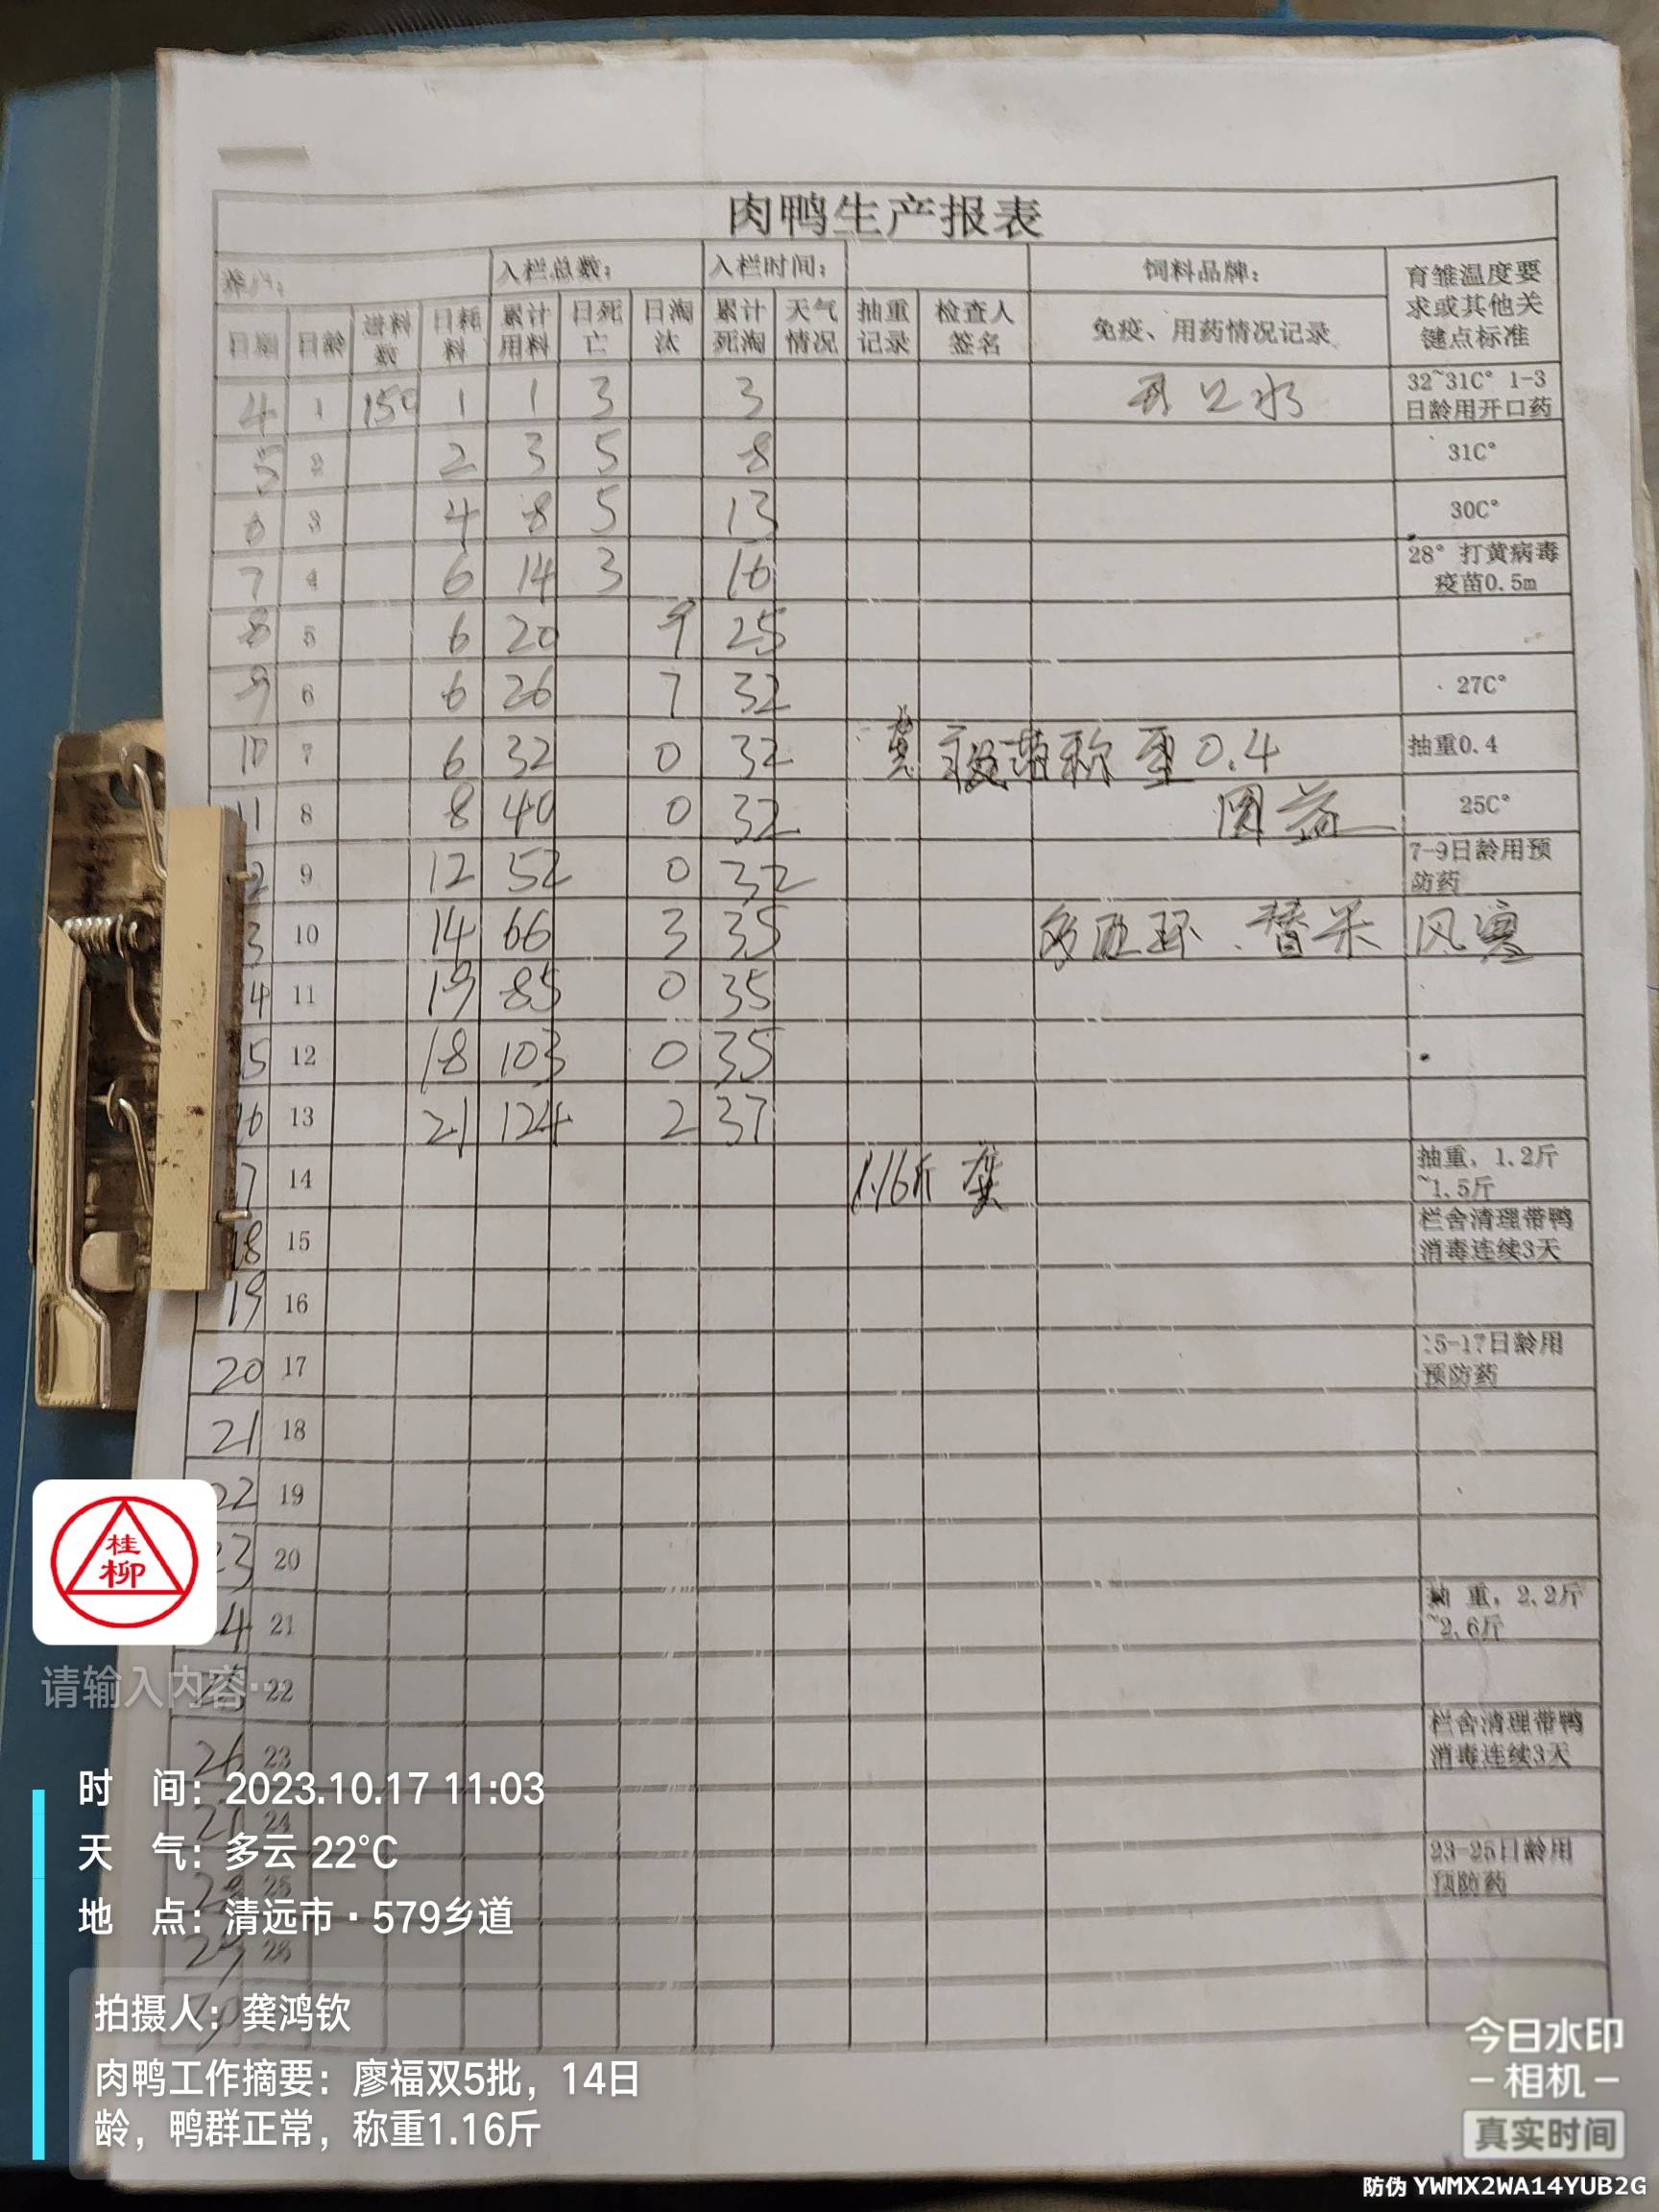 肉鸭生产报表
养户： 入栏总数： 入栏时间： 饲料品牌： 育雏温度要求或其他关键点标准
日期 日龄 进料数 日耗料 累计用料 日死亡 日淘汰 累计死淘 天气情况 抽重记录 检查人签名 免疫、用药情况记录
4 1 150 1 1 3 3 开口水 32~31C° 1-3日龄用开口药
5 2 2 3 5 8 31C°
6 3 4 8 5 13 30C°
7 4 6 14 3 16 28° 打黄病毒疫苗0.5m
8 5 6 20 9 25
9 6 6 26 7 32 27C°
10 7 6 32 0 32 称重0.4 抽重0.4
11 8 8 40 0 32 25C°
2 9 12 52 0 32 7-9日龄用预防药
3 10 14 66 3 35 风寒
4 11 19 85 0 35
5 12 18 103 0 35
16 13 21 124 2 37
7 14 1.16斤 龚 抽重，1.2斤~1.5斤
18 15 栏舍清理带鸭消毒连续3天
19 16
20 17 15-17日龄用预防药
21 18
22 19
23 20
4 21 抽 重，2.2斤~2.6斤
22
26 23 栏舍清理带鸭消毒连续3天
27 24
28 25 23-25日龄用预防药
29 26
桂柳
请输入内容…
时 间：2023.10.17 11:03
天 气：多云 22°C
地 点：清远市·579乡道
拍摄人：龚鸿钦
肉鸭工作摘要：廖福双5批，14日
龄，鸭群正常，称重1.16斤
今日水印
相机
真实时间
防伪 YWMX2WA14YUB2G